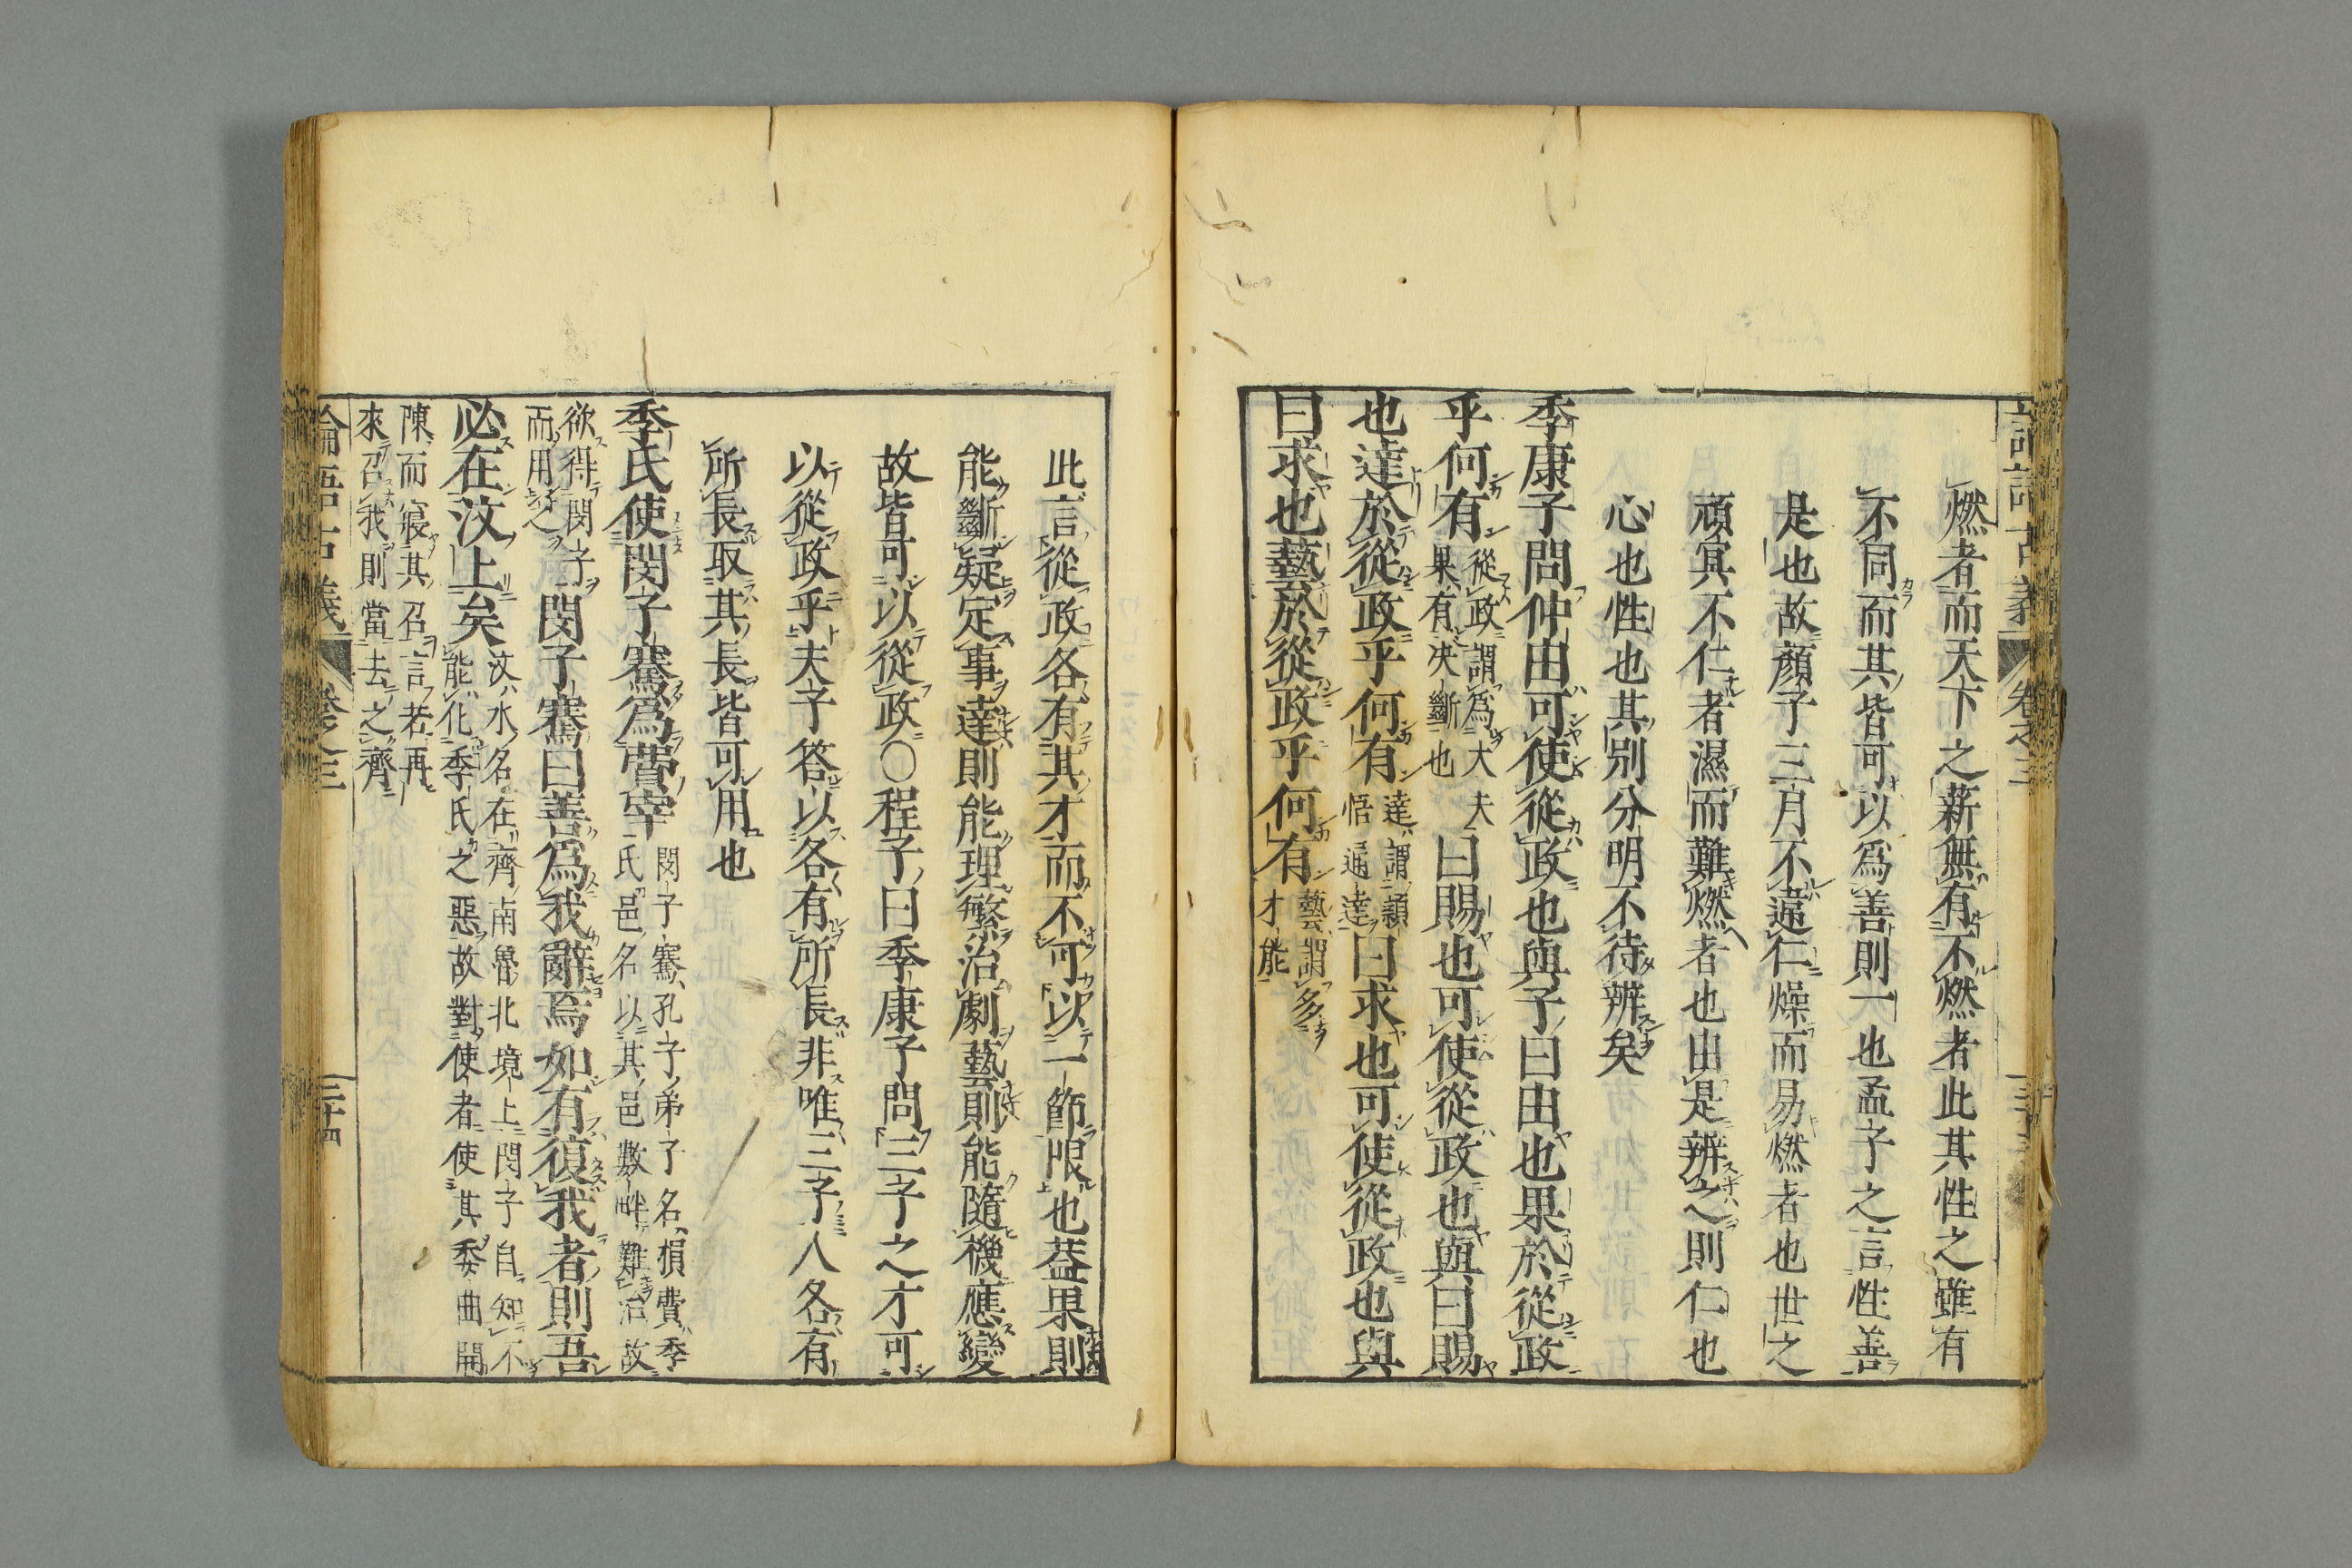 燃者而天下之薪無有不燃者此其性之雖有
不同而其皆可以爲善則一也孟子之言性善
是也故顏子三月不違仁燥而易燃者也世之
頑冥不仁者濕而難燃者也由是辨之則仁也
心也性也其別分明不待辨矣
季康子問仲由可使從政也與子曰由也果於從政
乎何有從政謂爲大夫
果有决斷也曰賜也可使從政也與曰賜
也達於從政乎何有達謂穎
悟通達曰求也可使從政也與
曰求也藝於從政乎何有藝謂多
才能
此言從政各有其才而不可以一節限也葢果則
能斷疑定事達則能理繁治劇藝則能隨機應變
故皆可以從政〇程子曰季康子問三子之才可
以從政乎夫子答以各有所長非唯三子人各有
所長取其長皆可用也
季氏使閔子騫爲費宰閔子騫孔子弟子名損費季
氏邑名以其邑數畔難治故
欲得閔子
而用之閔子騫曰善爲我辭焉如有復我者則吾
必在汶上矣汶水名在齊南魯北境上閔子自知不
能化季氏之惡故對使者使其委曲開
陳而寢其召言若再
來召我則當去之齊
論語古義
卷之三
三十四